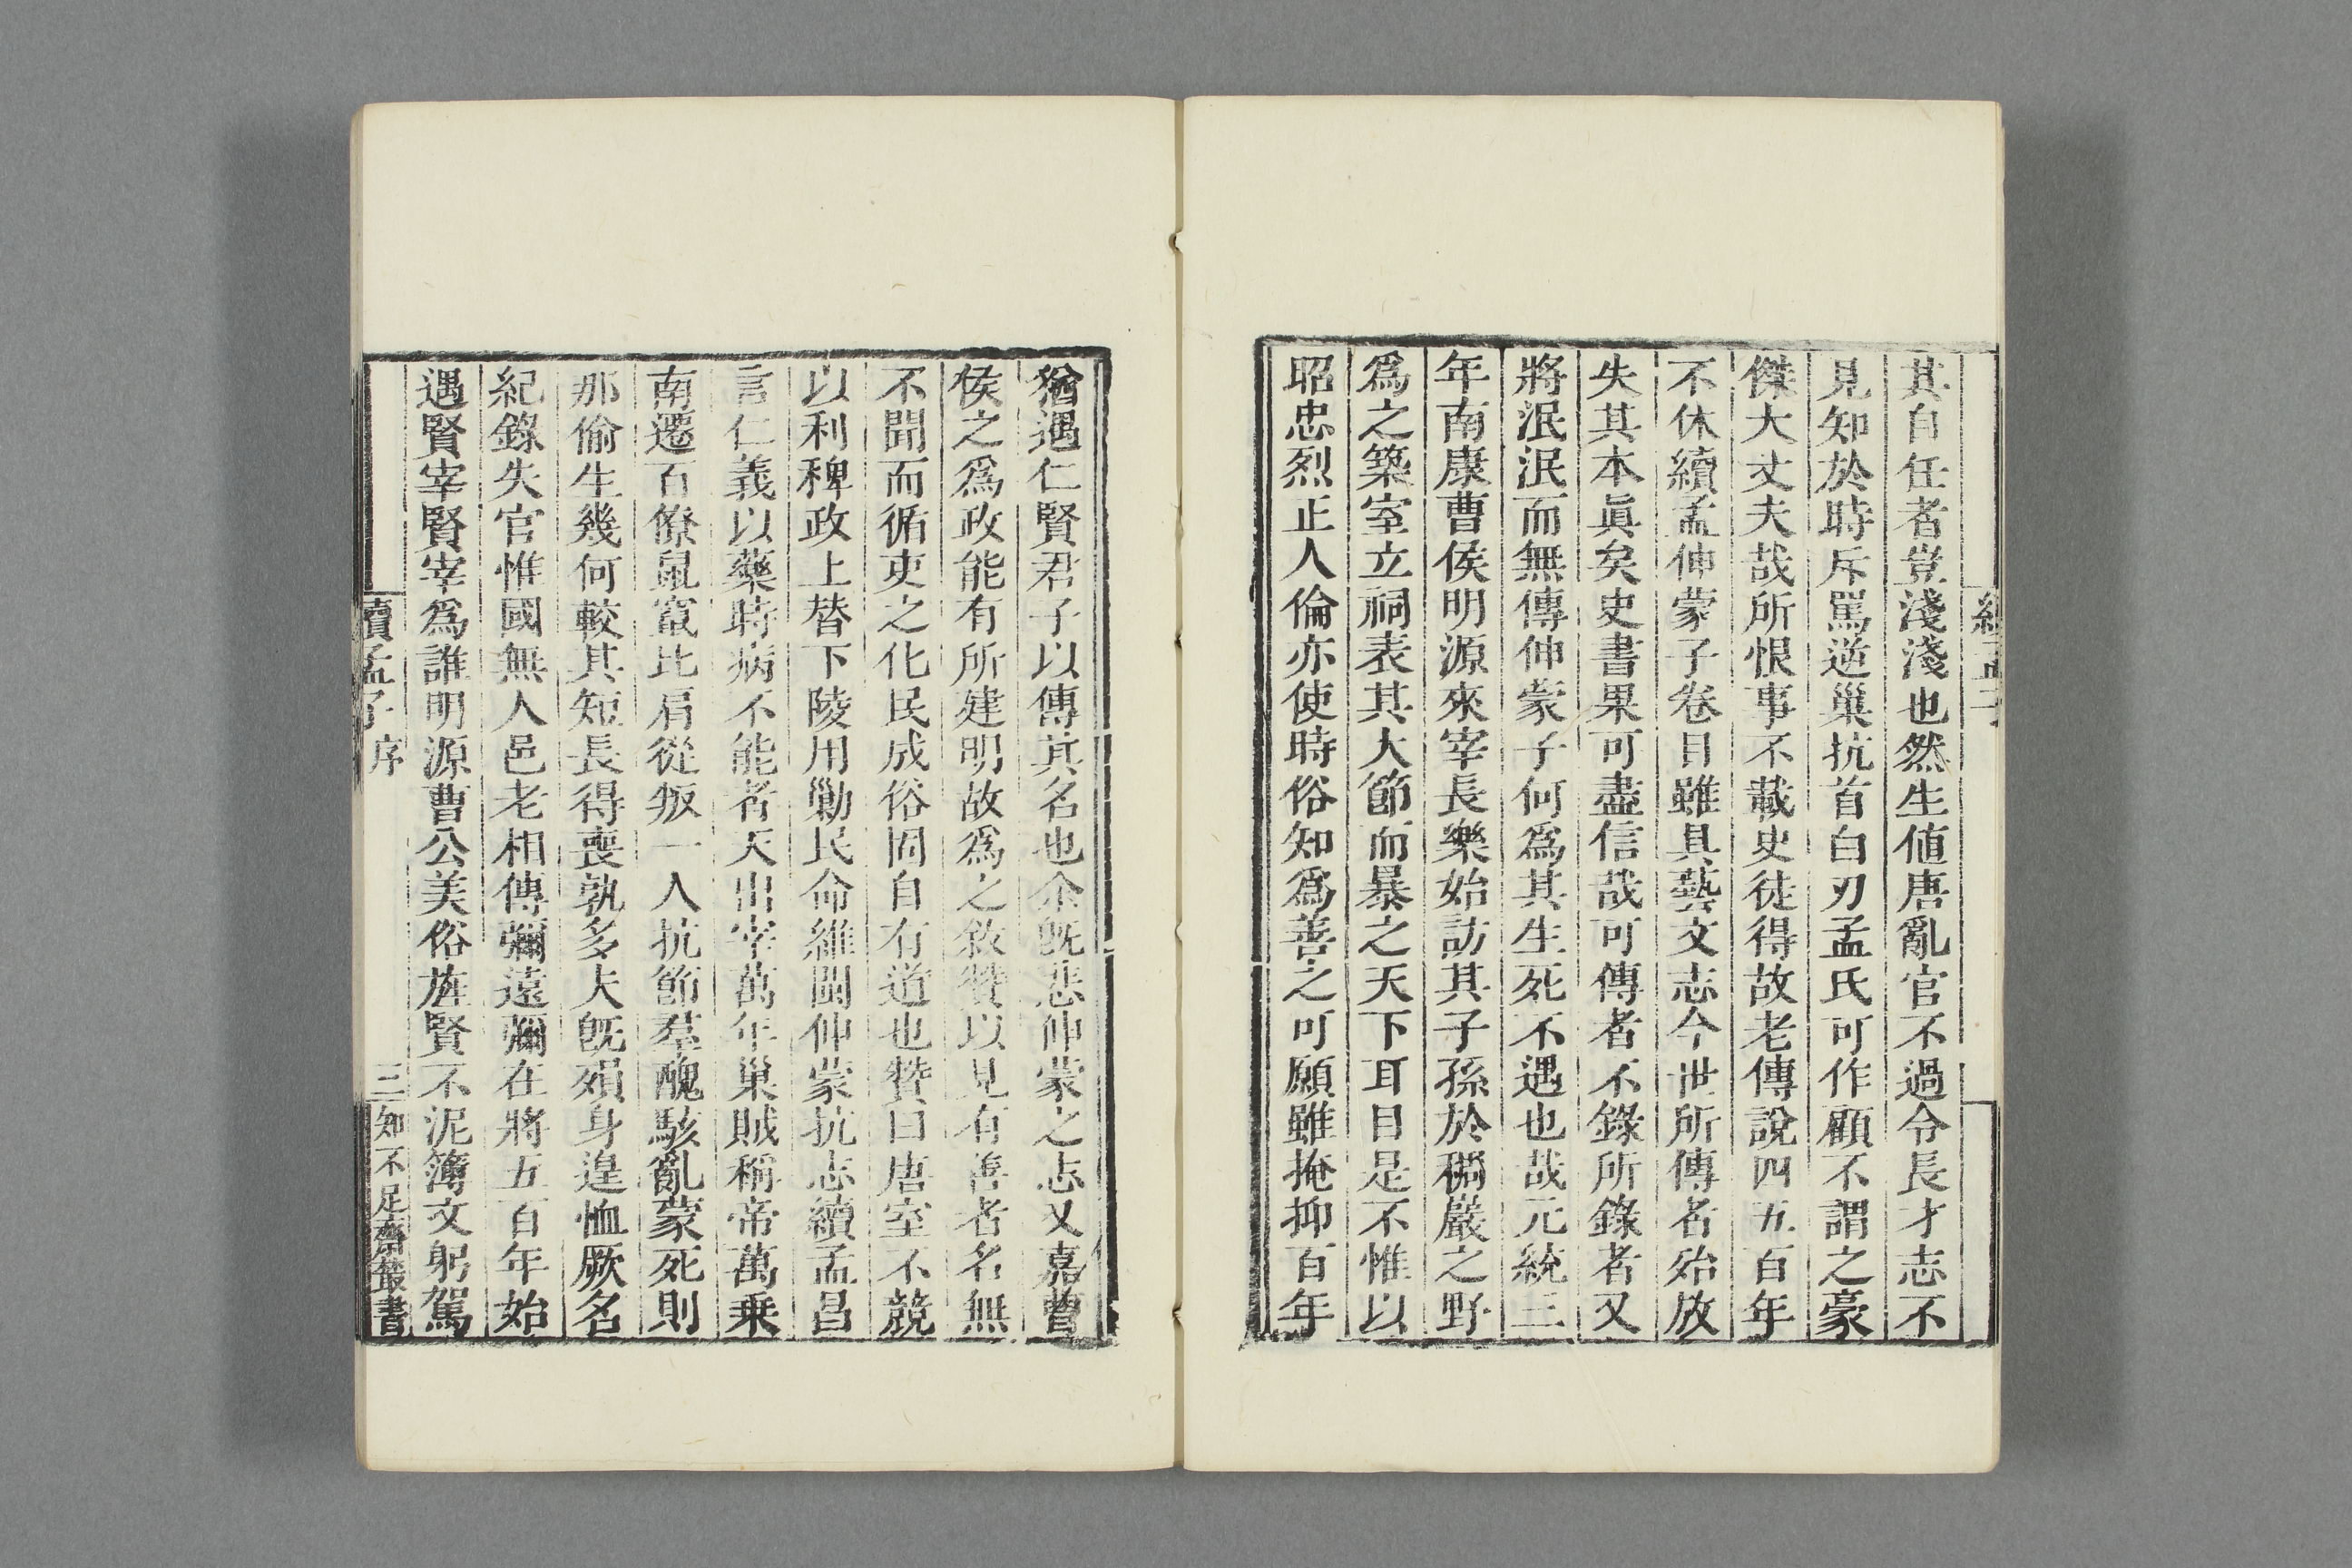 其自任者豈淺淺也然生値唐亂官不過令長才志不
見知於時斥罵逆巢抗首白刃孟氏可作顧不謂之豪
傑大丈夫哉所恨事不載史徒得故老傳說四五百年
不休續孟伸蒙子卷目雖具藝文志今世所傳者殆放
失其本眞矣史書果可盡信哉可傳者不錄所錄者又
將泯泯而無傳伸蒙子何爲其生死不遇也哉元統三
年南康曹侯明源來宰長樂始訪其子孫於稠巖之野
爲之築室立祠表其大節而暴之天下耳目是不惟以
昭忠烈正人倫亦使時俗知爲善之可願雖掩抑百年
猶遇仁賢君子以傳其名也余旣悲伸蒙之志又嘉曹
侯之爲政能有所建明故爲之敘贊以見有善者名無
不聞而循吏之化民成俗固自有道也贊曰唐室不競
以利稗政上替下陵用勦民命維閩伸蒙抗志續孟昌
言仁義以藥時病不能者天出宰萬年巢賊稱帝萬乗
南遷百僚鼠竄比肩從叛一人抗節羣醜駭亂蒙死則
那偷生幾何較其短長得喪孰多夫旣殞身遑恤厥名
紀錄失官惟國無人邑老相傳彌遠彌在將五百年始
遇賢宰賢宰爲誰明源曹公美俗旌賢不泥簿文躬駕
續孟子 序 三 知不足齋叢書